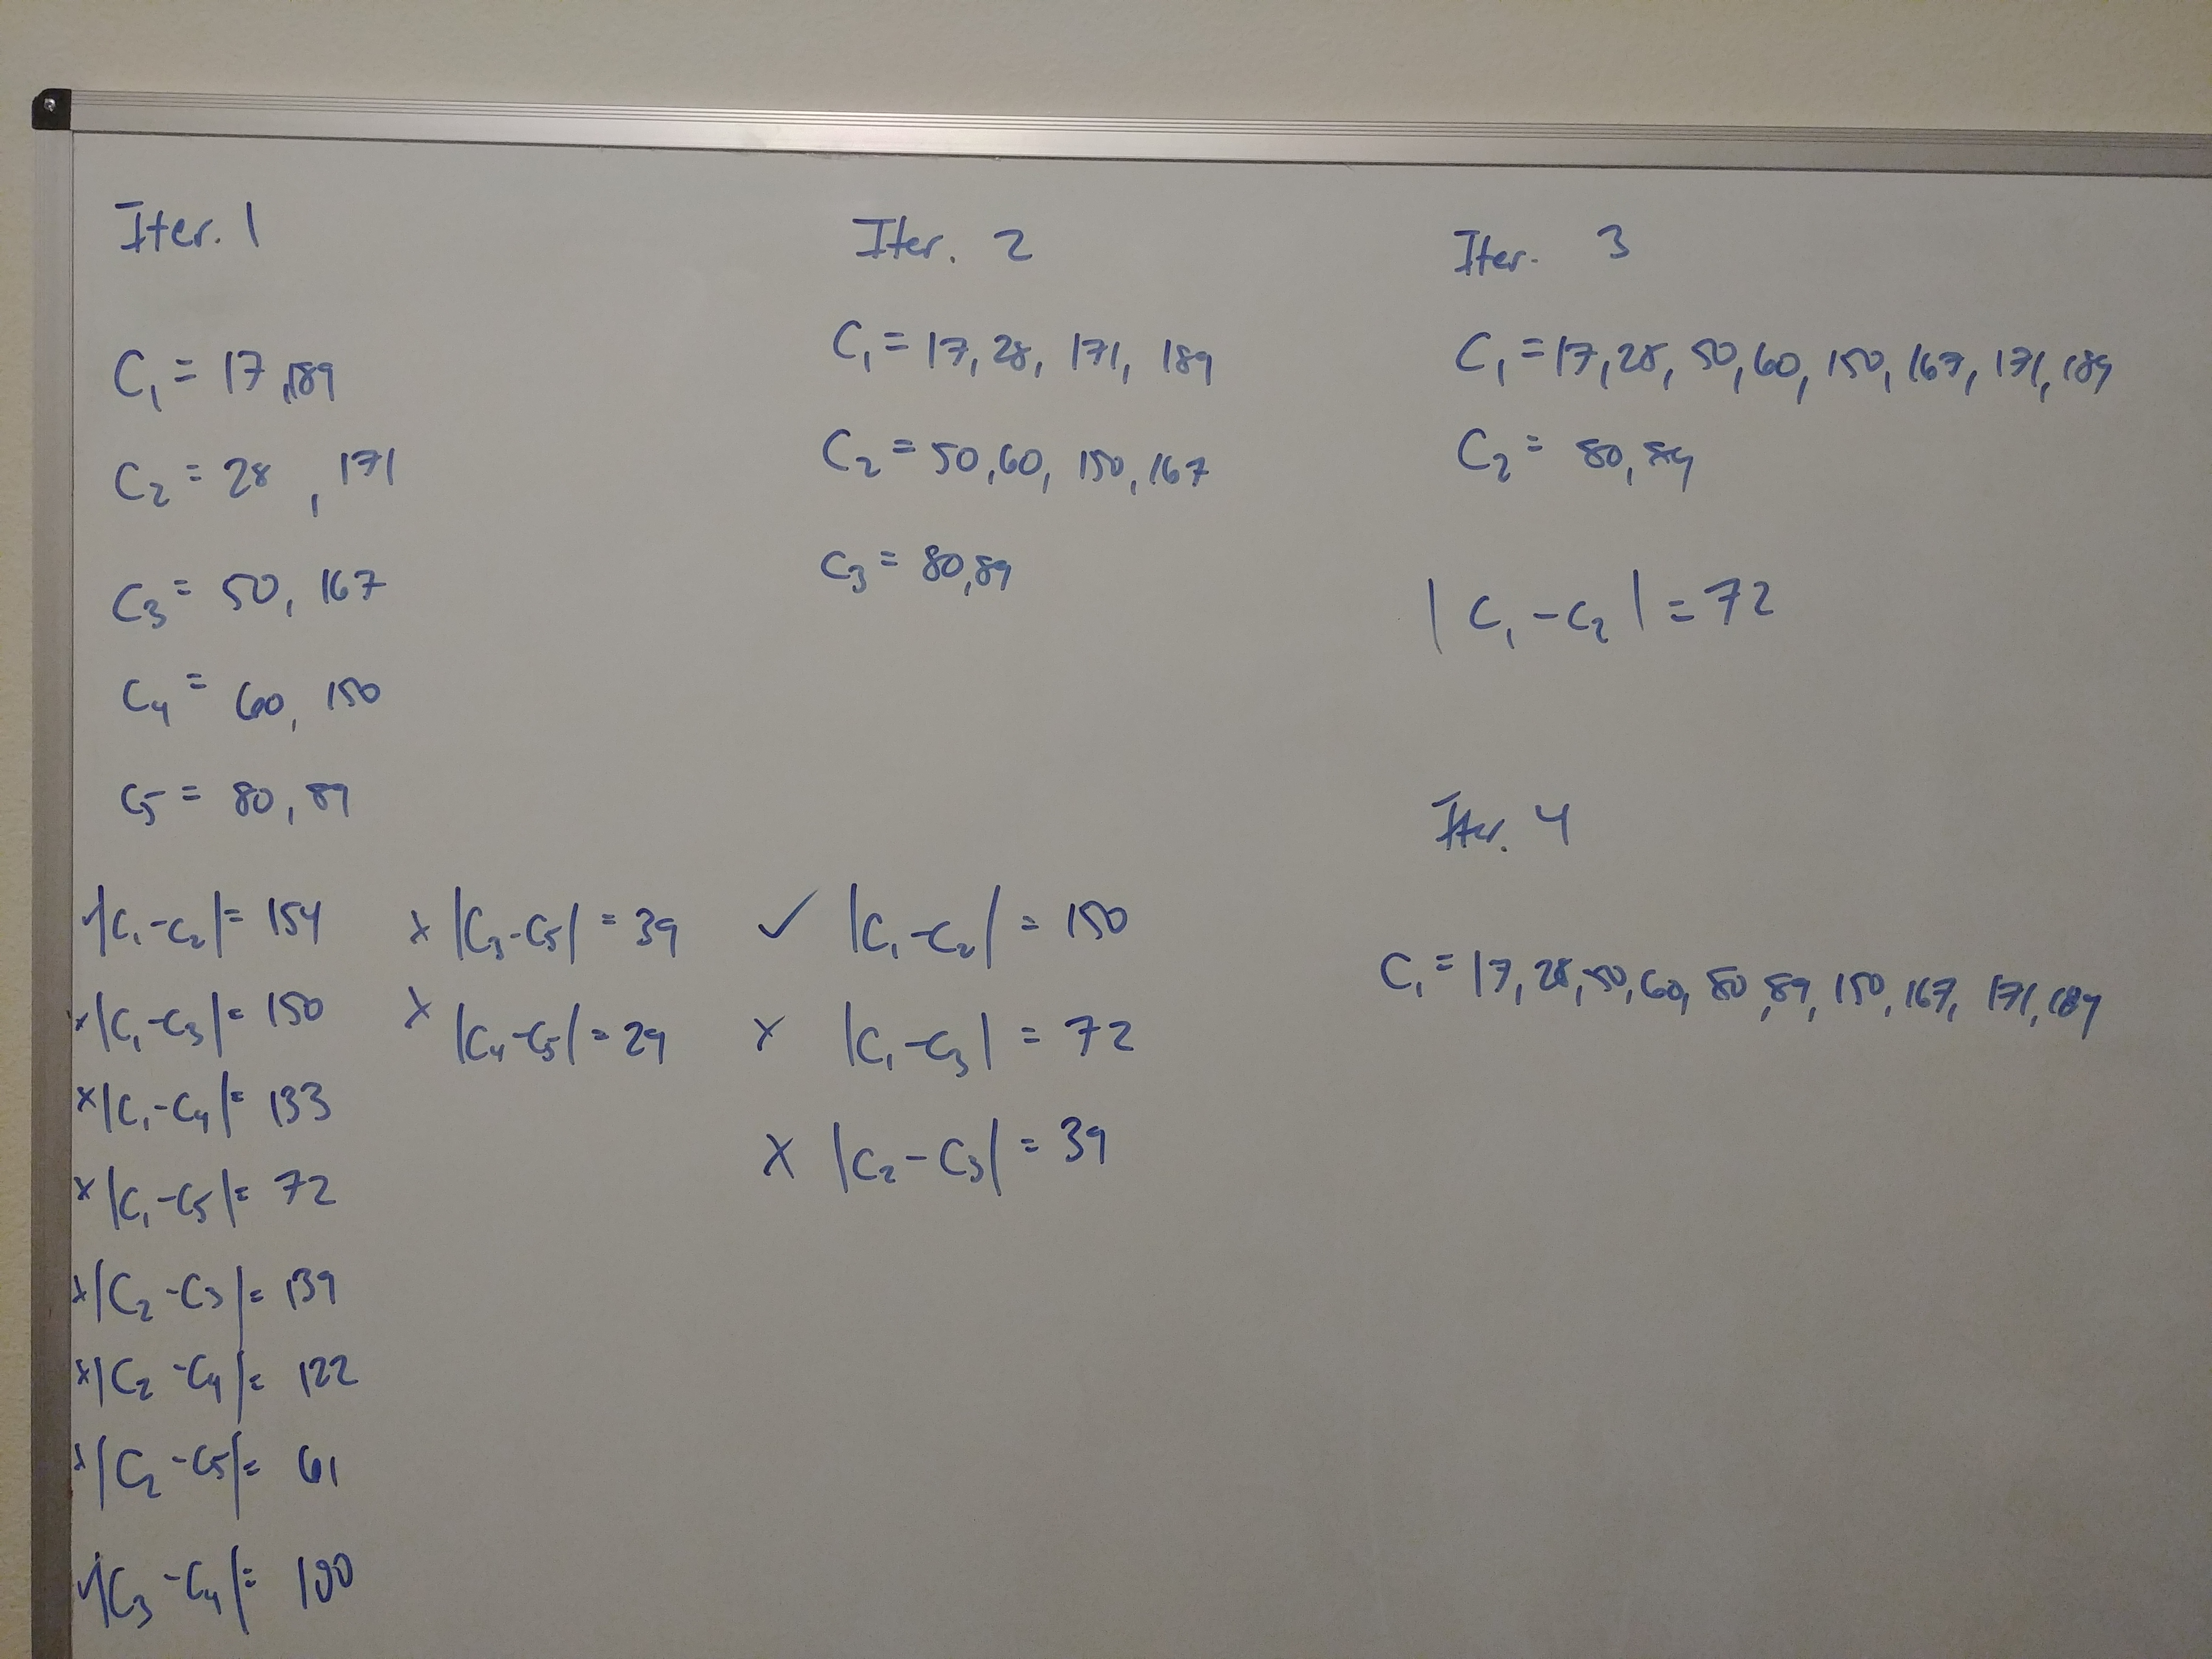 Iter. 1
C₁ = 17, 189
C₂ = 28, 171
C₃ = 50, 167
C₄ = 60, 150
C₅ = 80, 89
✓ |C₁-C₂| = 154
x |C₁-C₃| = 150
x |C₁-C₄| = 133
x |C₁-C₅| = 72
x |C₂-C₃| = 139
x |C₂-C₄| = 122
x |C₂-C₅| = 61
✓ |C₃-C₄| = 100
x |C₃-C₅| = 39
x |C₄-C₅| = 29
Iter. 2
C₁ = 17, 28, 171, 189
C₂ = 50, 60, 150, 167
C₃ = 80, 89
✓ |C₁-C₂| = 150
x |C₁-C₃| = 72
x |C₂-C₃| = 39
Iter. 3
C₁ = 17, 28, 50, 60, 150, 167, 171, 189
C₂ = 80, 89
|C₁-C₂| = 72
Iter. 4
C₁ = 17, 28, 50, 60, 80, 89, 150, 167, 171, 189